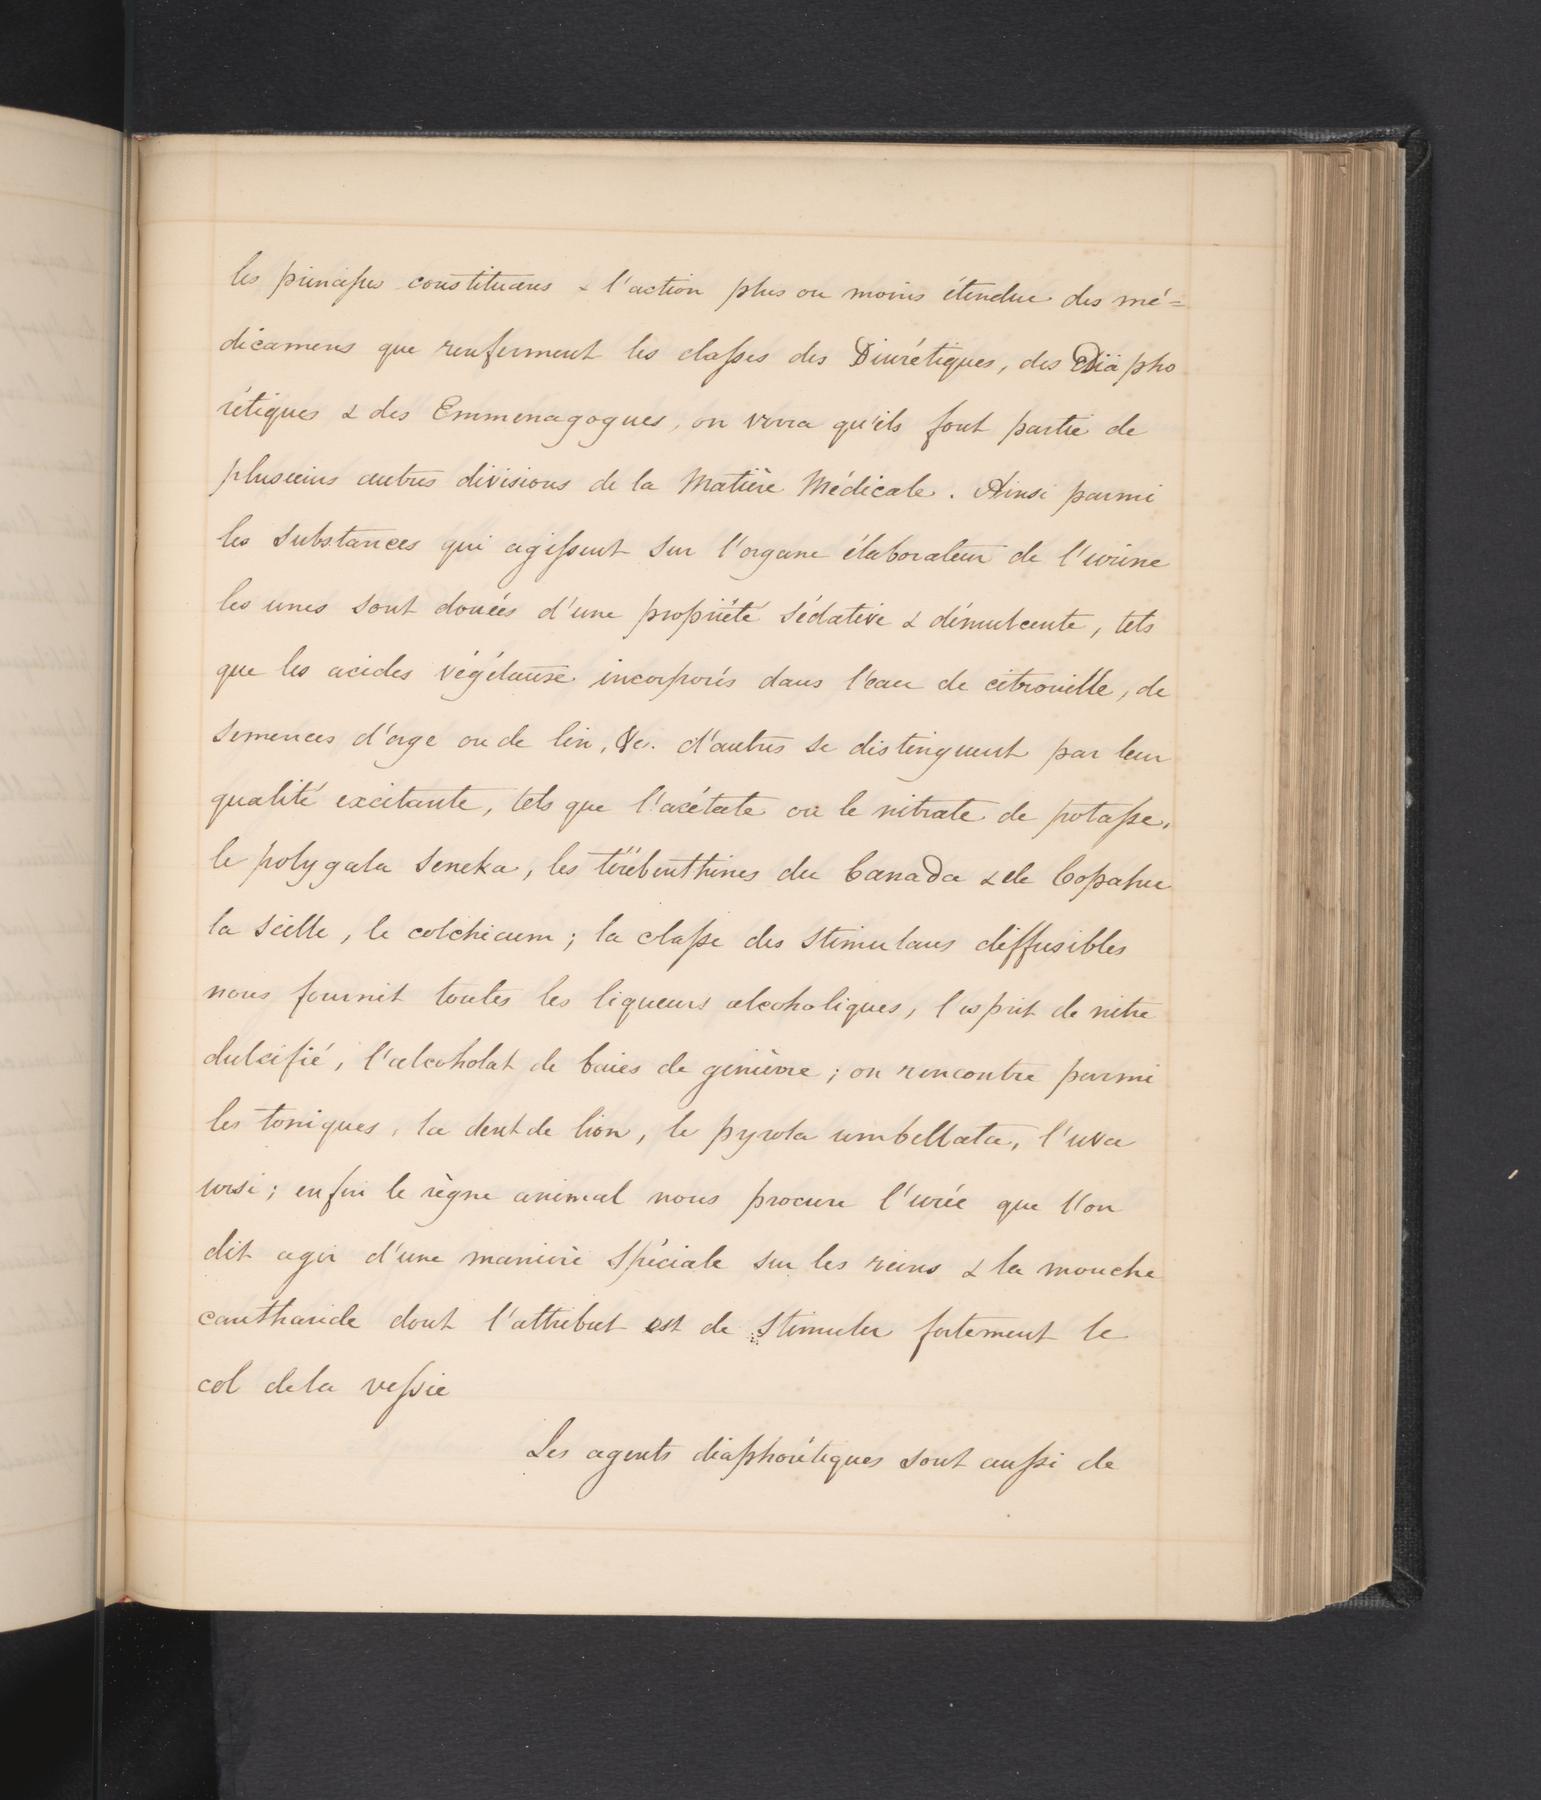 les principes constituans & l'action plus ou moins étendue des mé=
dicamens que renferment les classes des Diurétiques, des Diapho
rétiques & des Emmenagogues, on verra qu'ils font partie de
plusieurs autres divisions de la Matière Médicale. Ainsi parmi
les substances qui agissent sur l'organe élaborateur de l'urine
les unes sont douées d'une propriété sédative & démulcente, tels
que les acides végétaux incorporés dans l'eau de citrouille, de
semences d'orge ou de lin, &c. d'autres se distinguent par leur
qualité excitante, tels que l'acétate ou le nitrate de potasse,
le polygala seneka, les térébenthines du Canada & de Copahu
la scille, le colchicum; la classe des stimulans diffusibles
nous fournit toutes les liqueurs alcoholiques, l'esprit de nitre
dulcifié, l'alcoholat de baies de genièvre; on rencontre parmi
les toniques, la dent de lion, le pyrola umbellata, l'uva
ursi; enfin le règne animal nous procure l'urée que l'on
dit agir d'une manière spéciale sur les reins & la mouche
cantharide dont l'attribut est de stimuler fortement le
col de la vessie
Les agents diaphorétiques sont aussi de